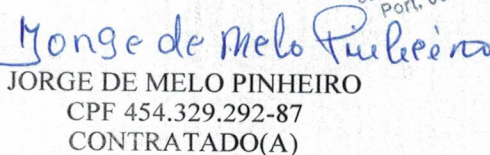 Jorge de Melo Pinheiro
JORGE DE MELO PINHEIRO
CPF 454.329.292-87
CONTRATADO(A)